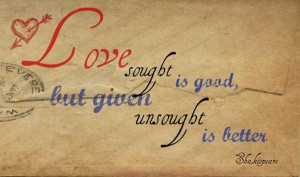 Love
sought is good,
but given
unsought
is better
Shakespeare
EVERE